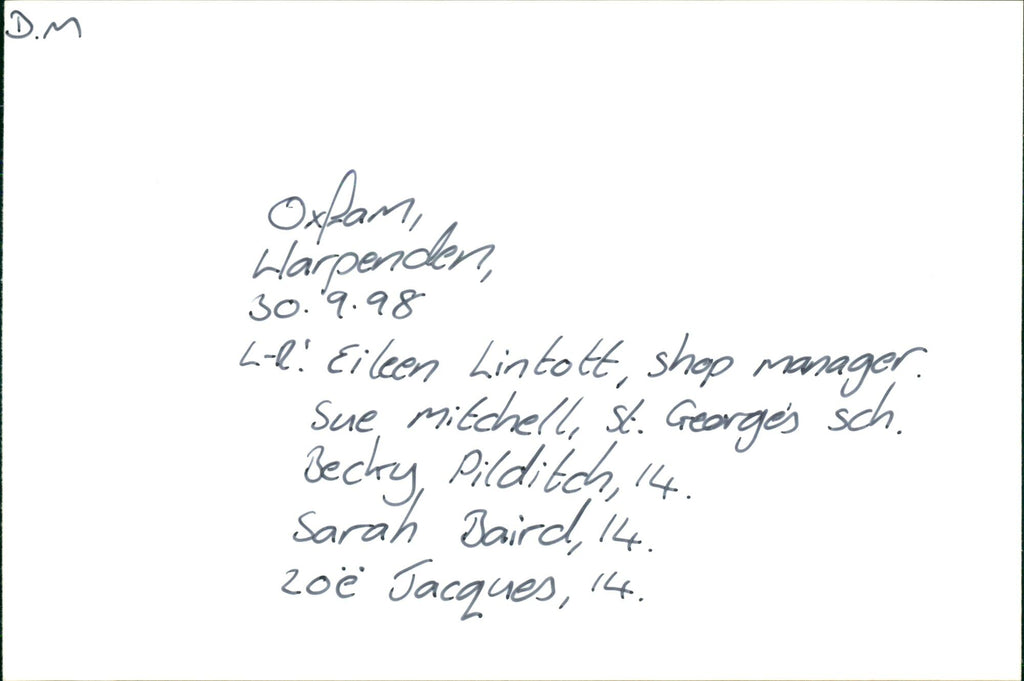 D.M
Oxfam,
Harpenden,
30.9.98
L-R: Eileen Lintott, shop manager.
Sue Mitchell, St. George's sch.
Becky Pilditch, 14.
Sarah Baird, 14.
Zoë Jacques, 14.